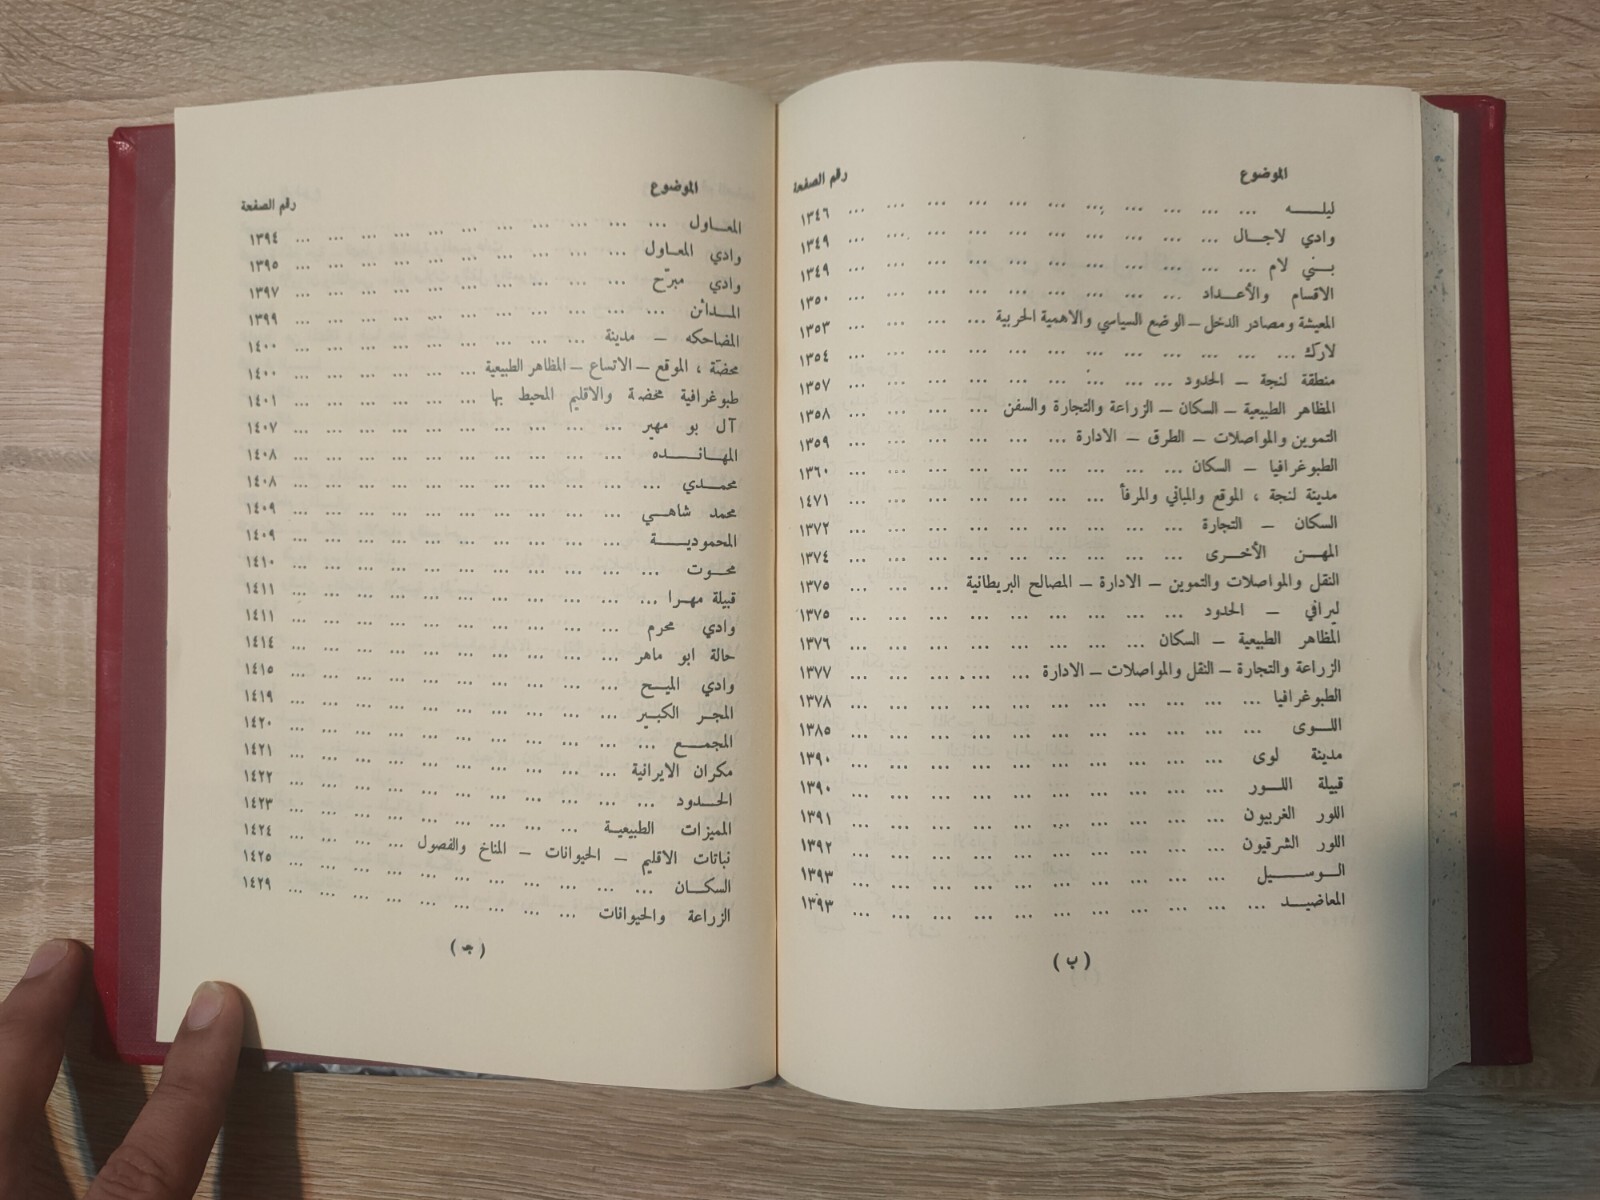 الموضوع رقم الصفحة
ليلـــه ... ... ... ... ... ... ... ... ... ... ... ١٣٤٦
وادي لاجـال ... ... ... ... ... ... ... ... ... ... ١٣٤٩
بــني لام ... ... ... ... ... ... ... ... ... ... ... ١٣٤٩
الاقسام والأعــداد ... ... ... ... ... ... ... ... ... ١٣٥٠
المعيشة ومصادر الدخل ـ الوضع السياسي والاهمية الحربية ... ... ... ... ١٣٥٣
لارك ... ... ... ... ... ... ... ... ... ... ... ... ١٣٥٤
منطقة لنجة ـ الحدود ... ... ... ... ... ... ... ... ... ١٣٥٧
المظاهر الطبيعية ـ السكان ـ الزراعة والتجارة والسفن ... ... ... ... ١٣٥٨
التموين والمواصلات ـ الطرق ـ الادارة ... ... ... ... ... ... ١٣٥٩
الطبوغرافيا ـ السكان ... ... ... ... ... ... ... ... ... ١٣٦٠
مدينة لنجة ، الموقع والمباني والمرفأ ... ... ... ... ... ... ... ١٤٧١
السكان ـ التجارة ... ... ... ... ... ... ... ... ... ١٣٧٢
المهـن الأخـرى ... ... ... ... ... ... ... ... ... ١٣٧٤
النقل والمواصلات والتموين ـ الادارة ـ المصالح البريطانية ... ... ... ١٣٧٥
ليرافي ـ الحدود ... ... ... ... ... ... ... ... ... ١٣٧٥
المظاهر الطبيعية ـ السكان ... ... ... ... ... ... ... ... ١٣٧٦
الزراعة والتجارة ـ النقل والمواصلات ـ الادارة ... ... ... ... ... ١٣٧٧
الطبوغرافيا ... ... ... ... ... ... ... ... ... ... ... ١٣٧٨
اللــوى ... ... ... ... ... ... ... ... ... ... ... ١٣٨٥
مدينة لوى ... ... ... ... ... ... ... ... ... ... ١٣٩٠
قبيلة اللــور ... ... ... ... ... ... ... ... ... ... ١٣٩٠
اللور الغربيون ... ... ... ... ... ... ... ... ... ... ١٣٩١
اللور الشرقيون ... ... ... ... ... ... ... ... ... ... ١٣٩٢
الـوسـيل ... ... ... ... ... ... ... ... ... ... ١٣٩٣
المعاضيـد ... ... ... ... ... ... ... ... ... ... ... ١٣٩٣
( ب )
الموضوع رقم الصفحة
المعـاول ... ... ... ... ... ... ... ... ... ... ... ... ١٣٩٤
وادي المعاول ... ... ... ... ... ... ... ... ... ... ... ١٣٩٥
وادي مبرّح ... ... ... ... ... ... ... ... ... ... ... ١٣٩٧
المـدائن ... ... ... ... ... ... ... ... ... ... ... ... ١٣٩٩
المضاحكه ـ مدينة ... ... ... ... ... ... ... ... ... ... ١٤٠٠
محضة ، الموقع ـ الاتساع ـ المظاهر الطبيعية ... ... ... ... ... ... ١٤٠٠
طبوغرافية محضة والاقليم المحيط بها ... ... ... ... ... ... ١٤٠١
آل بو مهير ... ... ... ... ... ... ... ... ... ... ... ١٤٠٧
المهـانـــده ... ... ... ... ... ... ... ... ... ... ... ١٤٠٨
محمـدي ... ... ... ... ... ... ... ... ... ... ... ... ١٤٠٨
محمد شاهـي ... ... ... ... ... ... ... ... ... ... ... ١٤٠٩
المحموديــة ... ... ... ... ... ... ... ... ... ... ... ١٤٠٩
محـوت ... ... ... ... ... ... ... ... ... ... ... ... ١٤١٠
قبيلة مهـرا ... ... ... ... ... ... ... ... ... ... ... ... ١٤١١
وادي محرم ... ... ... ... ... ... ... ... ... ... ... ١٤١١
حالة ابو ماهر ... ... ... ... ... ... ... ... ... ... ... ١٤١٤
وادي الميـح ... ... ... ... ... ... ... ... ... ... ... ١٤١٥
المجـر الكبـير ... ... ... ... ... ... ... ... ... ... ... ١٤١٩
المجمـع ... ... ... ... ... ... ... ... ... ... ... ... ١٤٢٠
مكران الايرانية ... ... ... ... ... ... ... ... ... ... ... ١٤٢١
الحـدود ... ... ... ... ... ... ... ... ... ... ... ... ١٤٢٢
المميزات الطبيعيـة ... ... ... ... ... ... ... ... ... ... ١٤٢٣
نباتات الاقليم ـ الحيوانات ـ المناخ والفصول ... ... ... ... ١٤٢٤
السكـان ... ... ... ... ... ... ... ... ... ... ... ... ١٤٢٥
الزراعة والحيوانات ... ... ... ... ... ... ... ... ... ... ١٤٢٩
( جـ )